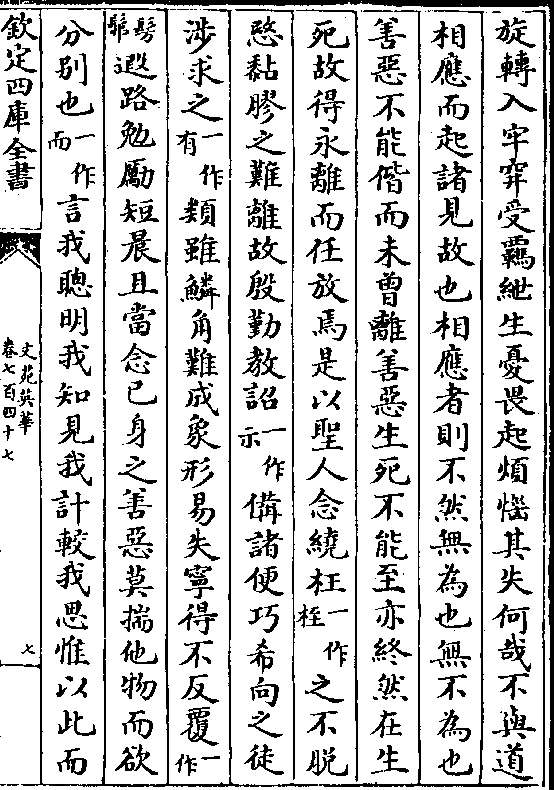 旋轉入牢穽受羈紲生憂畏起煩惱其失何哉不與道
相應而起諸見故也相應者則不然無為也無不為也
善惡不能偕而未曾離善惡生死不能至亦終然在生
死故得永離而任放焉是以聖人念繞枉一作桎之不脫
愍黏膠之難離故殷勤教詔一作示備諸便巧希向之徒
涉求之一作有類雖鱗角難成象形易失寧得不反覆一作
髣髴遐路勉勵短晨且當念已身之善惡莫揣他物而欲
分別也一作而言我聰明我知見我計較我思惟以此而
欽定四庫全書
文苑英華
卷七百四十七
七